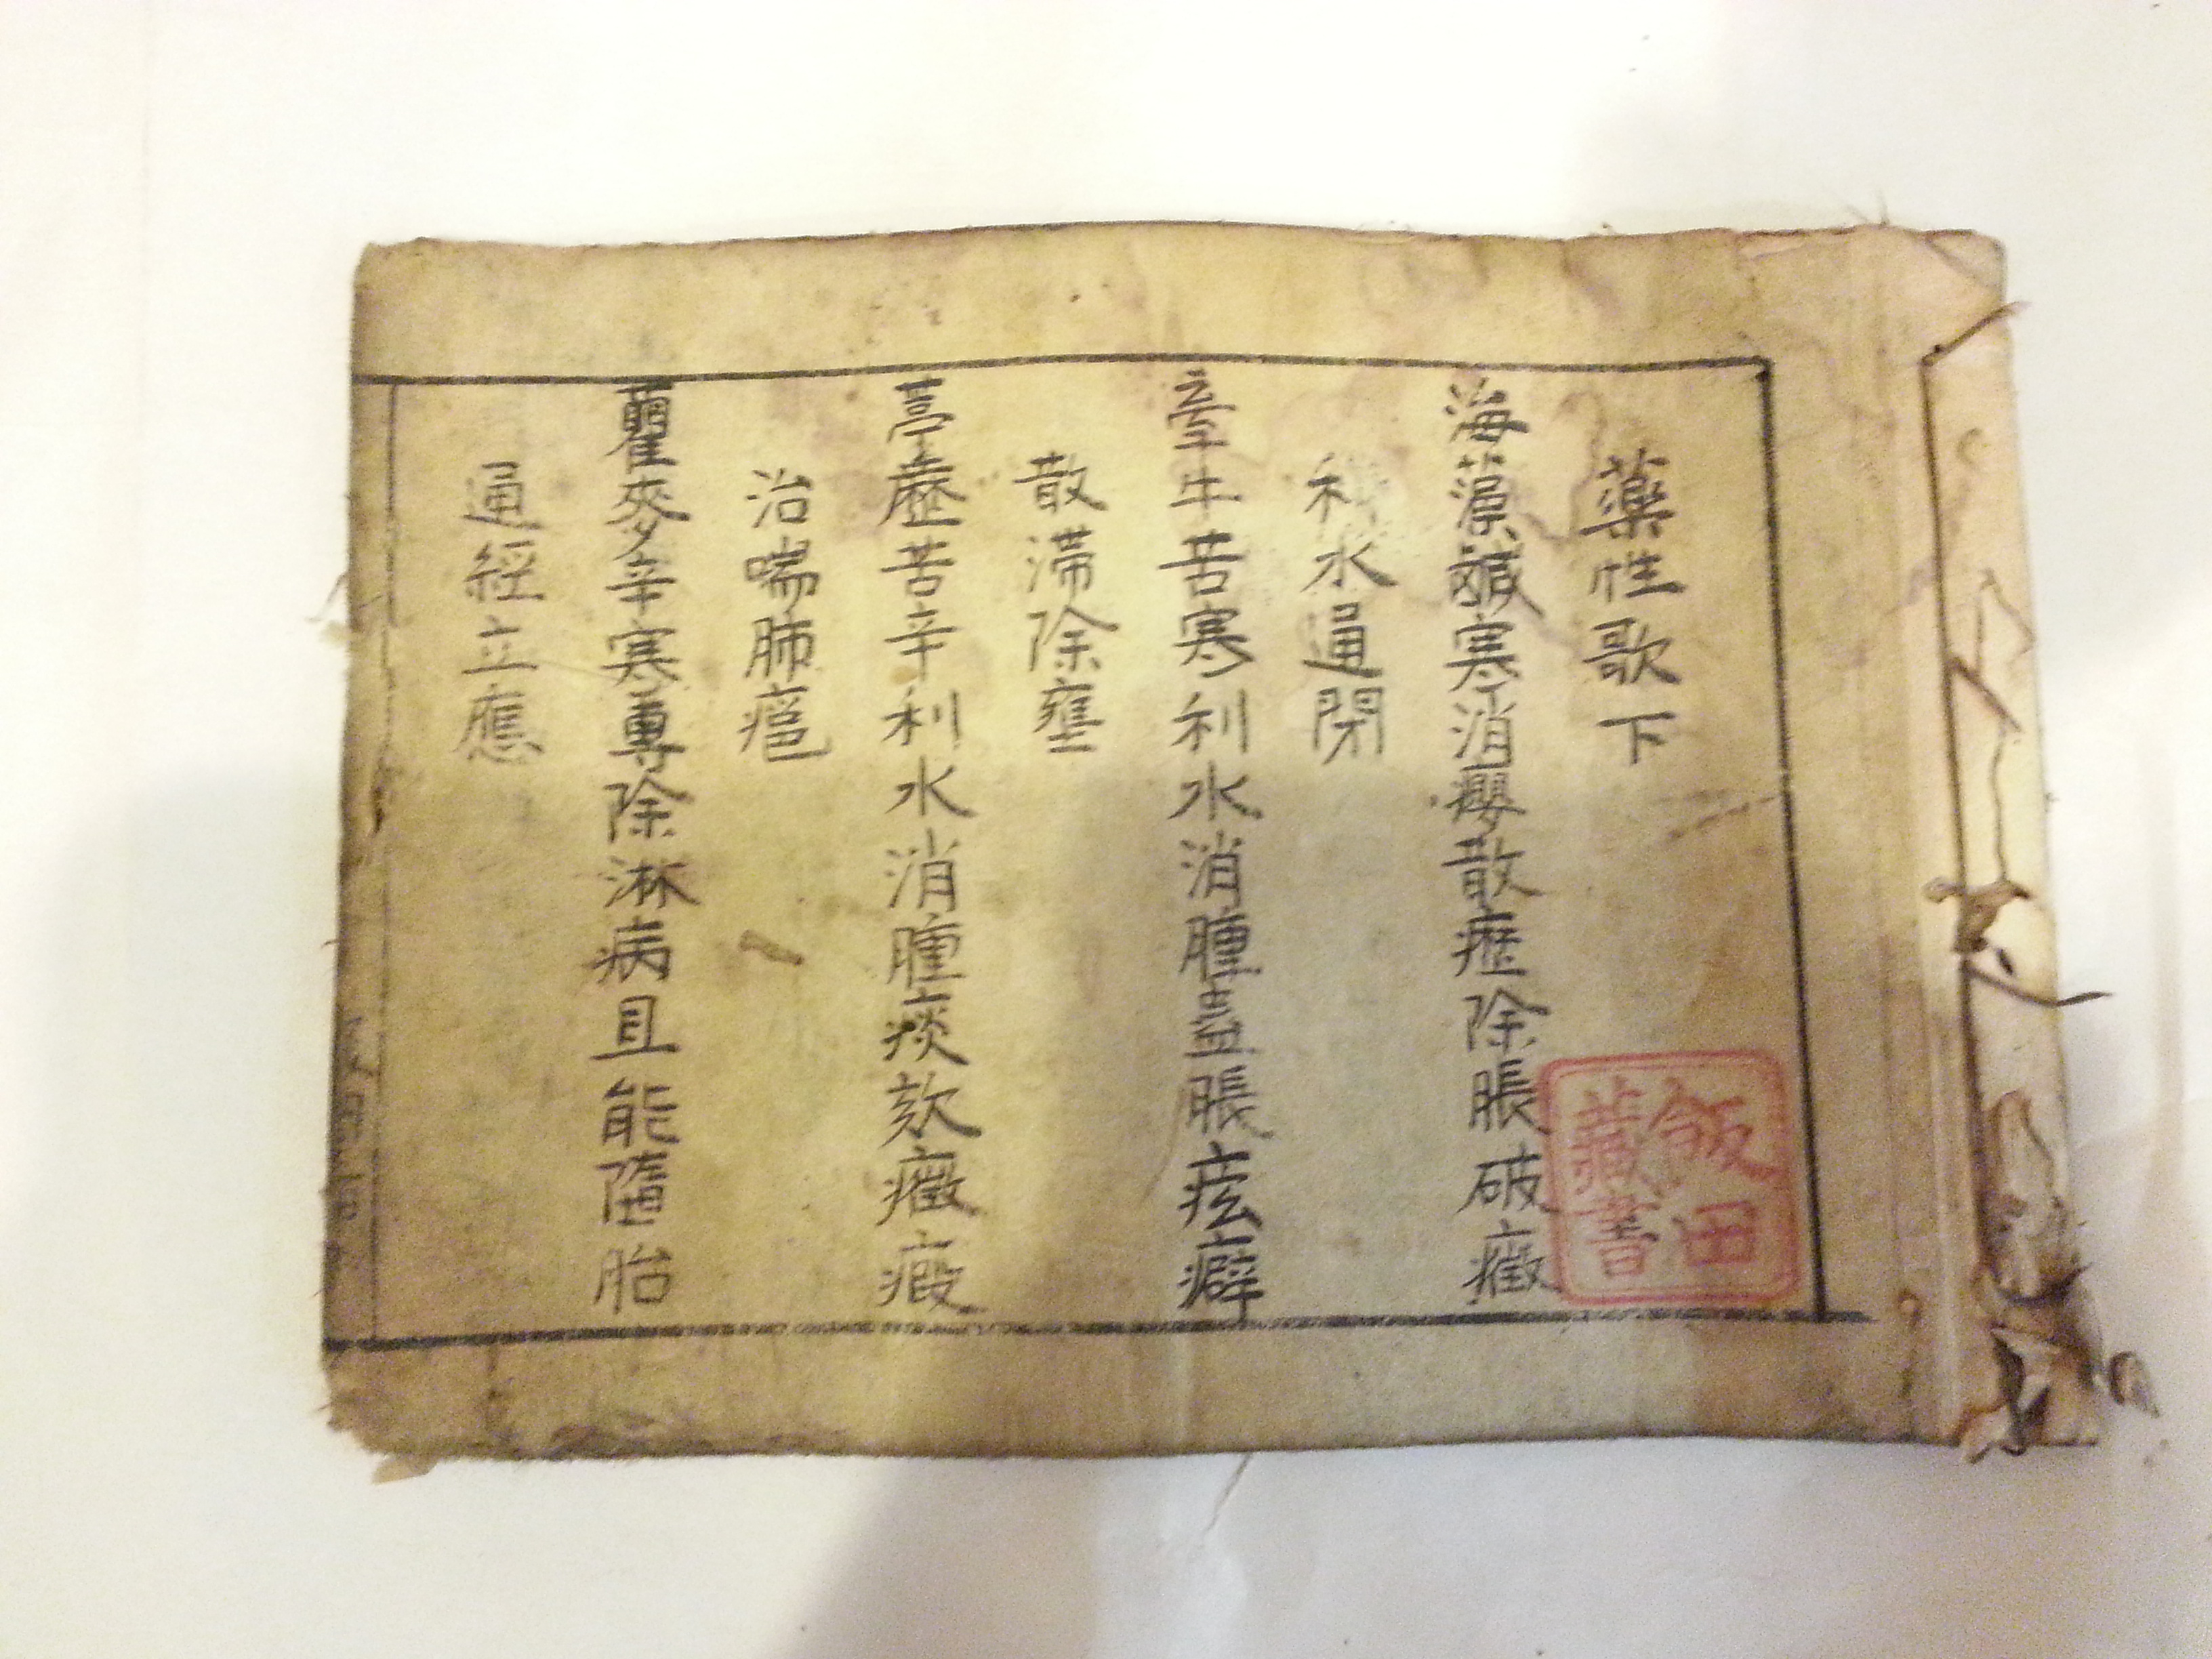 藥性歌下
海藻鹹寒消癭散癧除脹破癥
利水通閉
牽牛苦寒利水消腫蠱脹痃癖
散滯除壅
葶藶苦辛利水消腫痰欬癥瘕
治喘肺癰
瞿麥辛寒專除淋病且能墮胎
通經立應
飯田
藏書